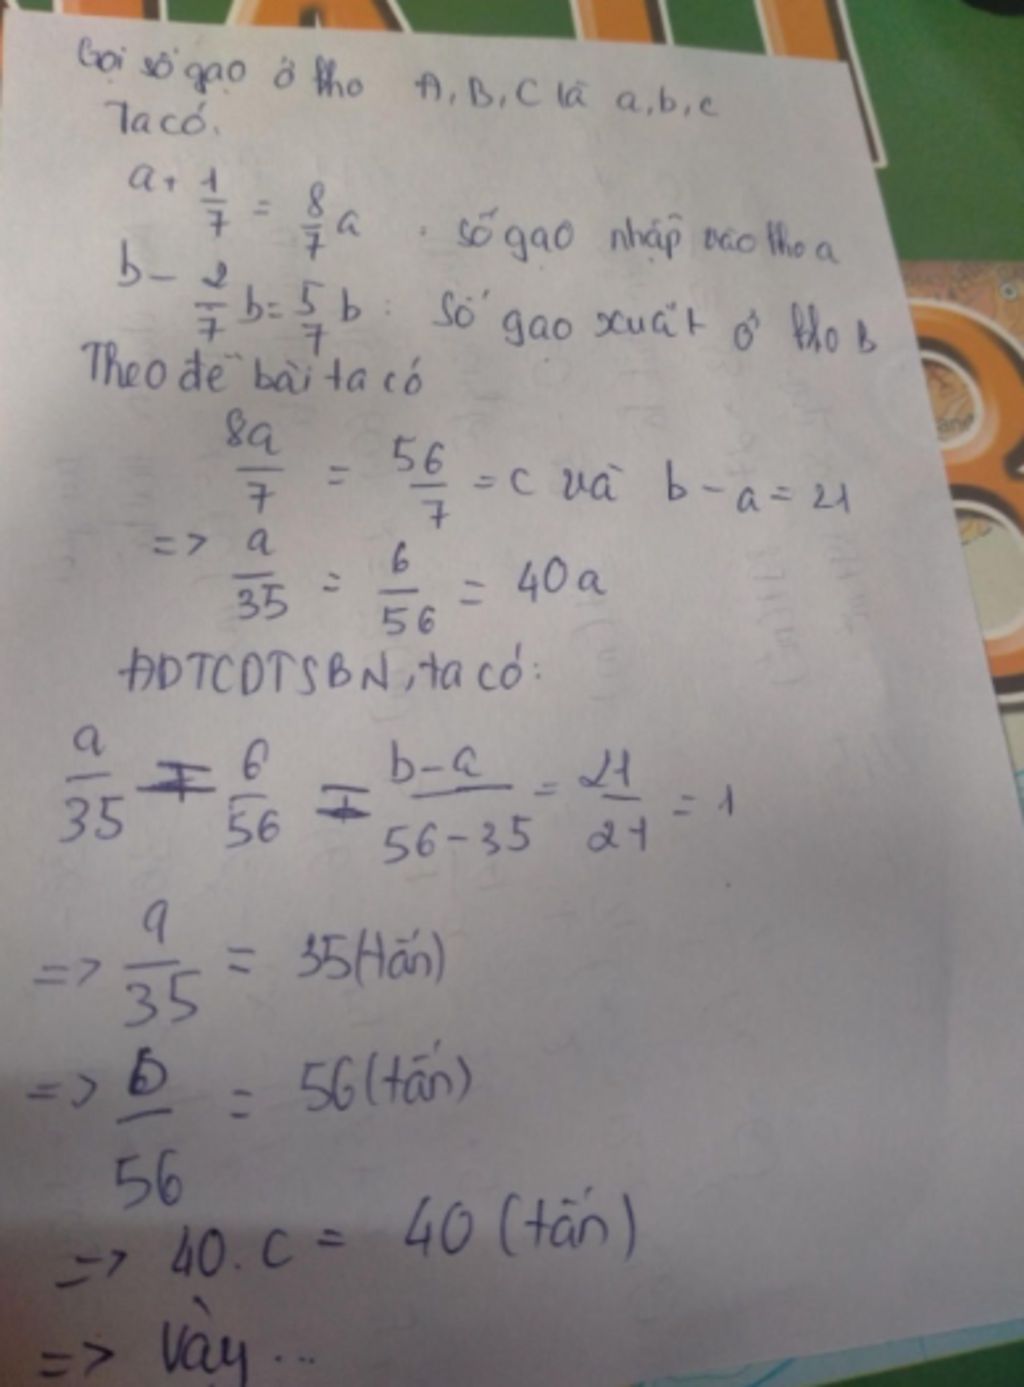 Gọi số gạo ở kho A, B, C là a, b, c
Ta có.
a + 1/7 = 8/7 a : số gạo nhập vào kho a
b - 2/7 b = 5/7 b : Số gạo xuất ở kho B
Theo đề bài ta có
8a/7 = 56/7 = c và b - a = 21
=> a/35 = 6/56 = 40a
ADTCDTSBN, ta có:
a/35 = 6/56 = b-a/56-35 = 21/21 = 1
=> a/35 = 35 (tấn)
=> b/56 = 56 (tấn)
=> 40. c = 40 (tấn)
=> Vậy ...